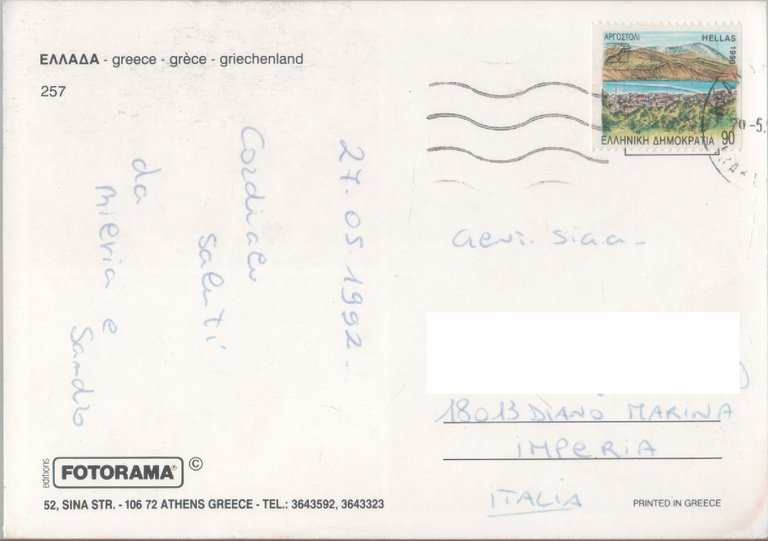 ΕΛΛΑΔΑ - greece - grèce - griechenland
257
27.05.1992.
Cordiali
saluti
da
e
Sandro
editions FOTORAMA ®©
52, SINA STR. - 106 72 ATHENS GREECE - TEL.: 3643592, 3643323
ΑΡΓΟΣΤΟΛΙ HELLAS
1990
ΕΛΛΗΝΙΚΗ ΔΗΜΟΚΡΑΤΙΑ 90
-5.
Gent. Sig.ra
18013 DIANO MARINA
IMPERIA
ITALIA
PRINTED IN GREECE